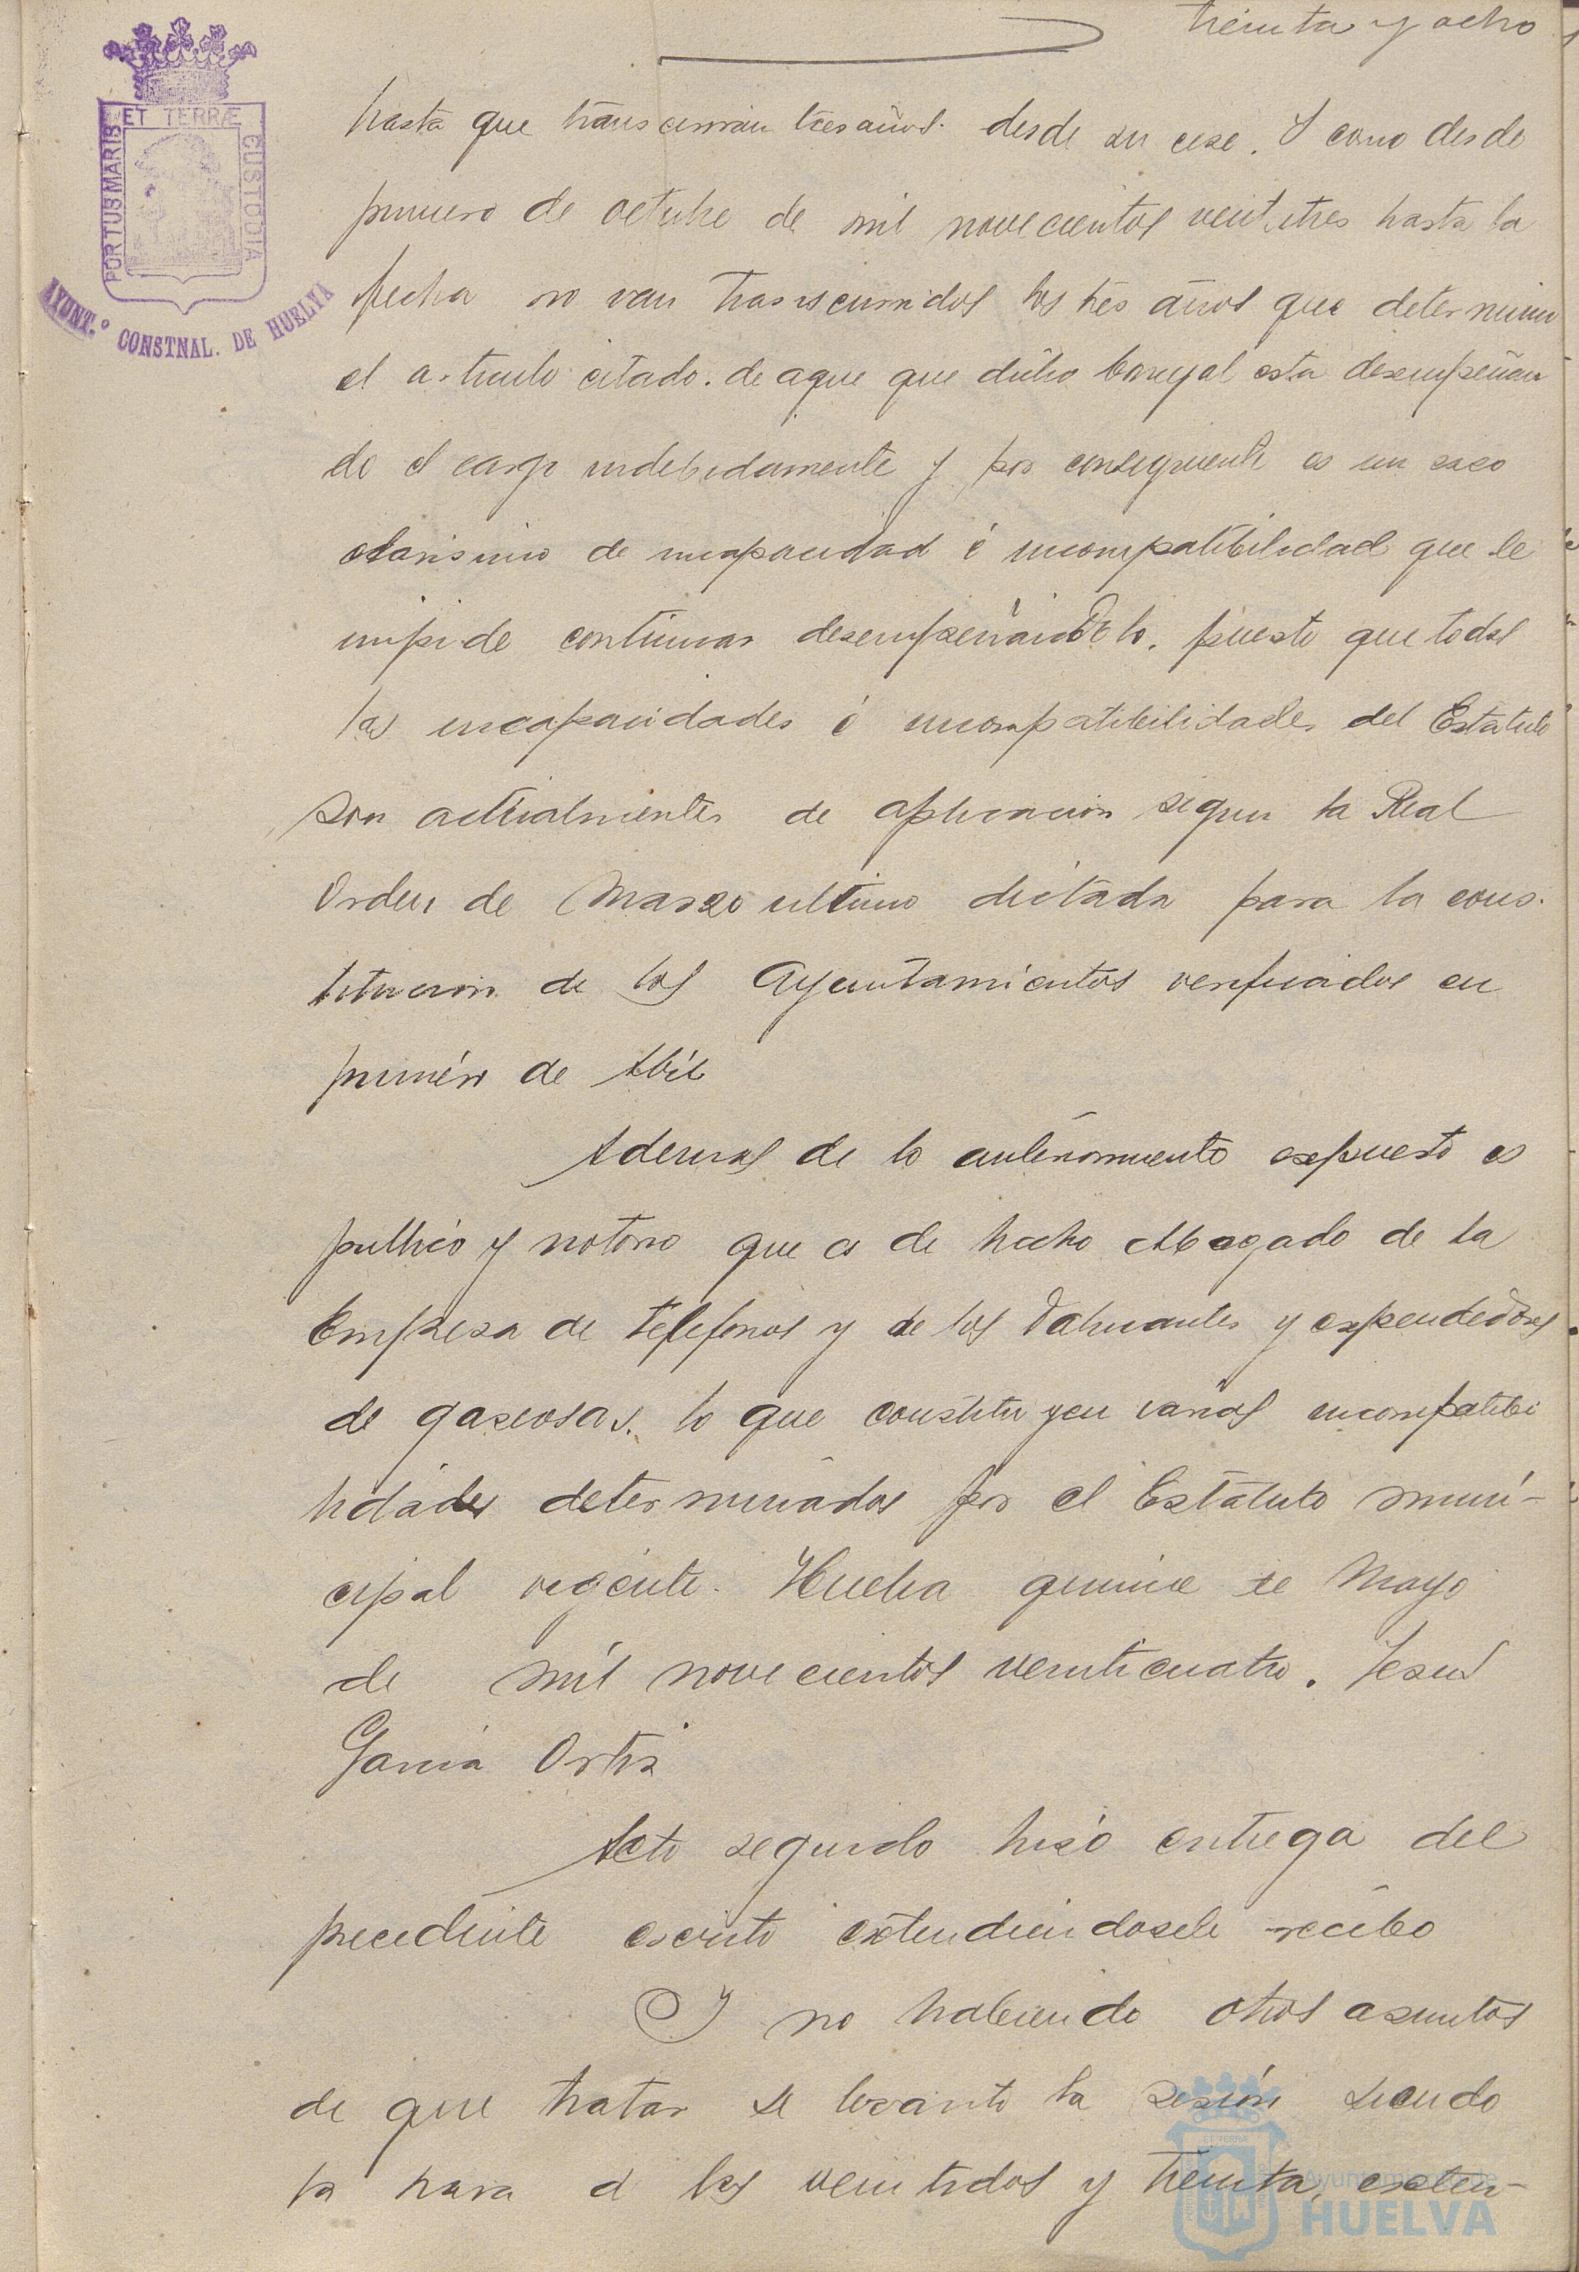 treinta y ocho
ET TERRÆ
PORTUS MARIS
CUSTODIA
AYUNT.º CONSTNAL. DE HUELVA
hasta que transcurran tres años desde su cese. Y como desde
primero de octubre de mil novecientos veintitres hasta la
fecha no van transcurridos los tres años que determina
el articulo citado. de aqui que dicho Concejal esta desempeñan
do el cargo indebidamente y por consiguiente es un caso
clarisimo de incapacidad é incompatibilidad que le
impide continuar desempeñandolo. puesto que todas
las incapacidades é incompatibilidades del Estatuto
son actualmente de aplicacion segun la Real
Orden de Marzo ultimo dictada para la cons-
titucion de los Ayuntamientos verificados en
primero de Abril
Ademas de lo anteriormente expuesto es
publico y notorio que es de hecho Abogado de la
Empresa de Telefonos y de los fabricantes y expendedores
de gaseosas. lo que constituyen varias incompatibi
lidades determinadas por el Estatuto muni-
cipal vigente. Huelva quince de Mayo
de mil novecientos veinticuatro. Jesus
Garcia Ortiz
Acto seguido hizo entrega del
precedente escrito extendiendosele recibo
Y no habiendo otros asuntos
de que tratar se levantó la sesión siendo
la hora d las veintidos y treinta, exten-
ET TERRÆ
Ayuntamiento de
HUELVA